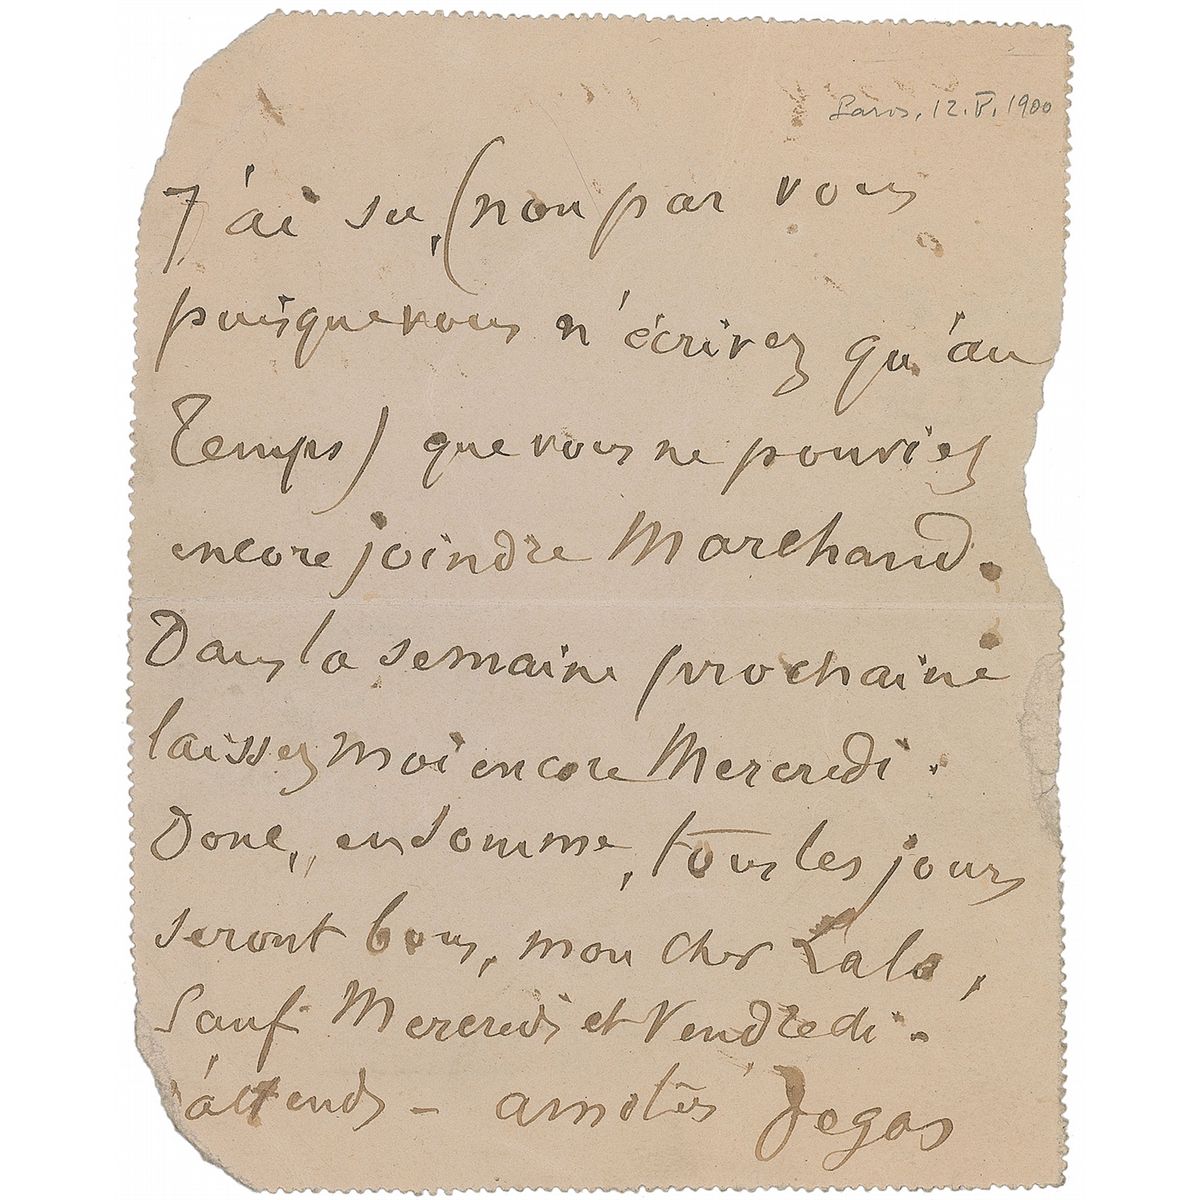 Paris, 12. V. 1900
J'ai su, (non par vous
puisque vous n'écrivez qu'au
Temps) que vous ne pouviez
encore joindre Marchand.
Dans la semaine prochaine
laissez moi encore Mercredi.
Donc, en somme, tous les jours
seront bons, mon cher Lalo,
Sauf Mercredi et Vendredi.
J'attends – amitiés Degas